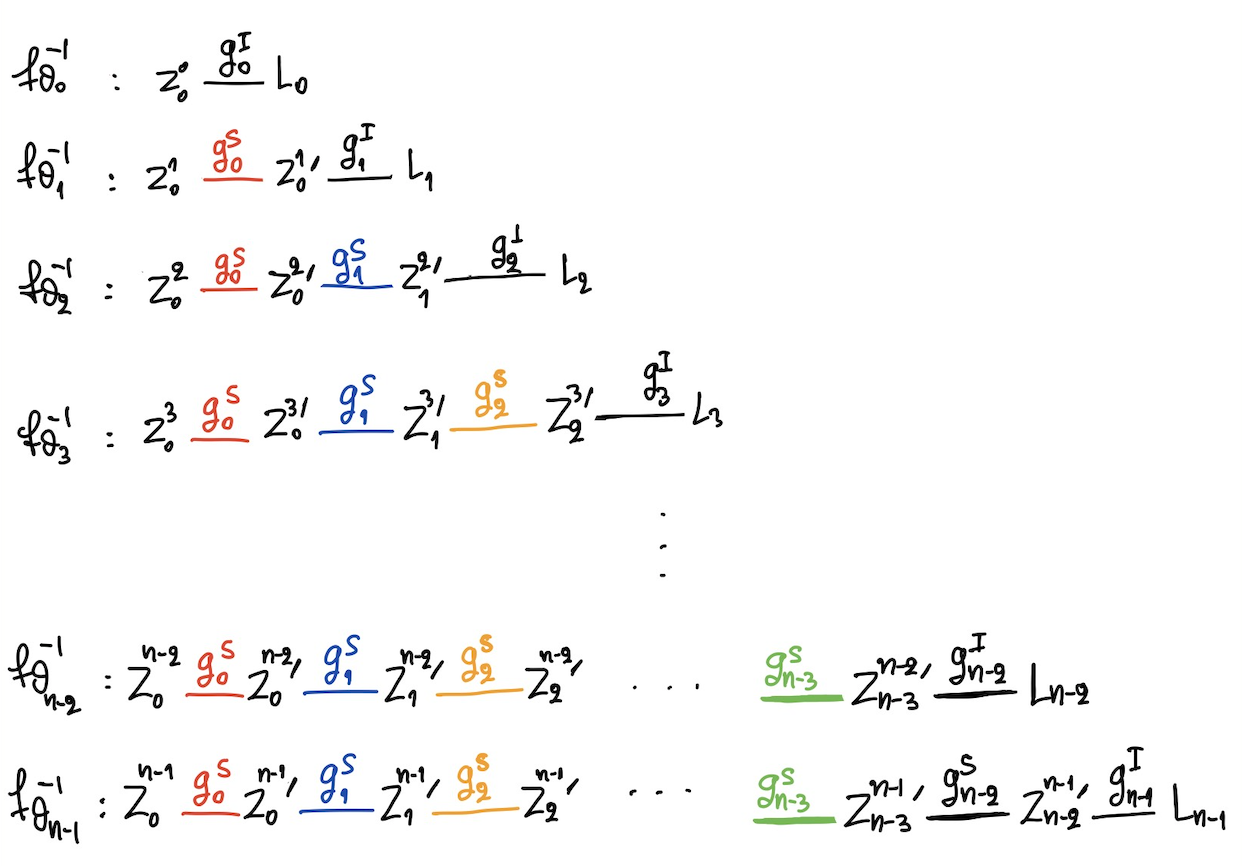 fθ₀⁻¹ : Z₀⁰ g₀ᴵ L₀
fθ₁⁻¹ : Z₀¹ g₀ˢ Z₀¹′ g₁ᴵ L₁
fθ₂⁻¹ : Z₀² g₀ˢ Z₀²′ g₁ˢ Z₁²′ g₂ᴵ L₂
fθ₃⁻¹ : Z₀³ g₀ˢ Z₀³′ g₁ˢ Z₁³′ g₂ˢ Z₂³′ g₃ᴵ L₃
⋮
fθₙ₋₂⁻¹ : Z₀ⁿ⁻² g₀ˢ Z₀ⁿ⁻²′ g₁ˢ Z₁ⁿ⁻²′ g₂ˢ Z₂ⁿ⁻²′ ... gₙ₋₃ˢ Zₙ₋₃ⁿ⁻²′ gₙ₋₂ᴵ Lₙ₋₂
fθₙ₋₁⁻¹ : Z₀ⁿ⁻¹ g₀ˢ Z₀ⁿ⁻¹′ g₁ˢ Z₁ⁿ⁻¹′ g₂ˢ Z₂ⁿ⁻¹′ ... gₙ₋₃ˢ Zₙ₋₃ⁿ⁻¹′ gₙ₋₂ˢ Zₙ₋₂ⁿ⁻¹′ gₙ₋₁ᴵ Lₙ₋₁